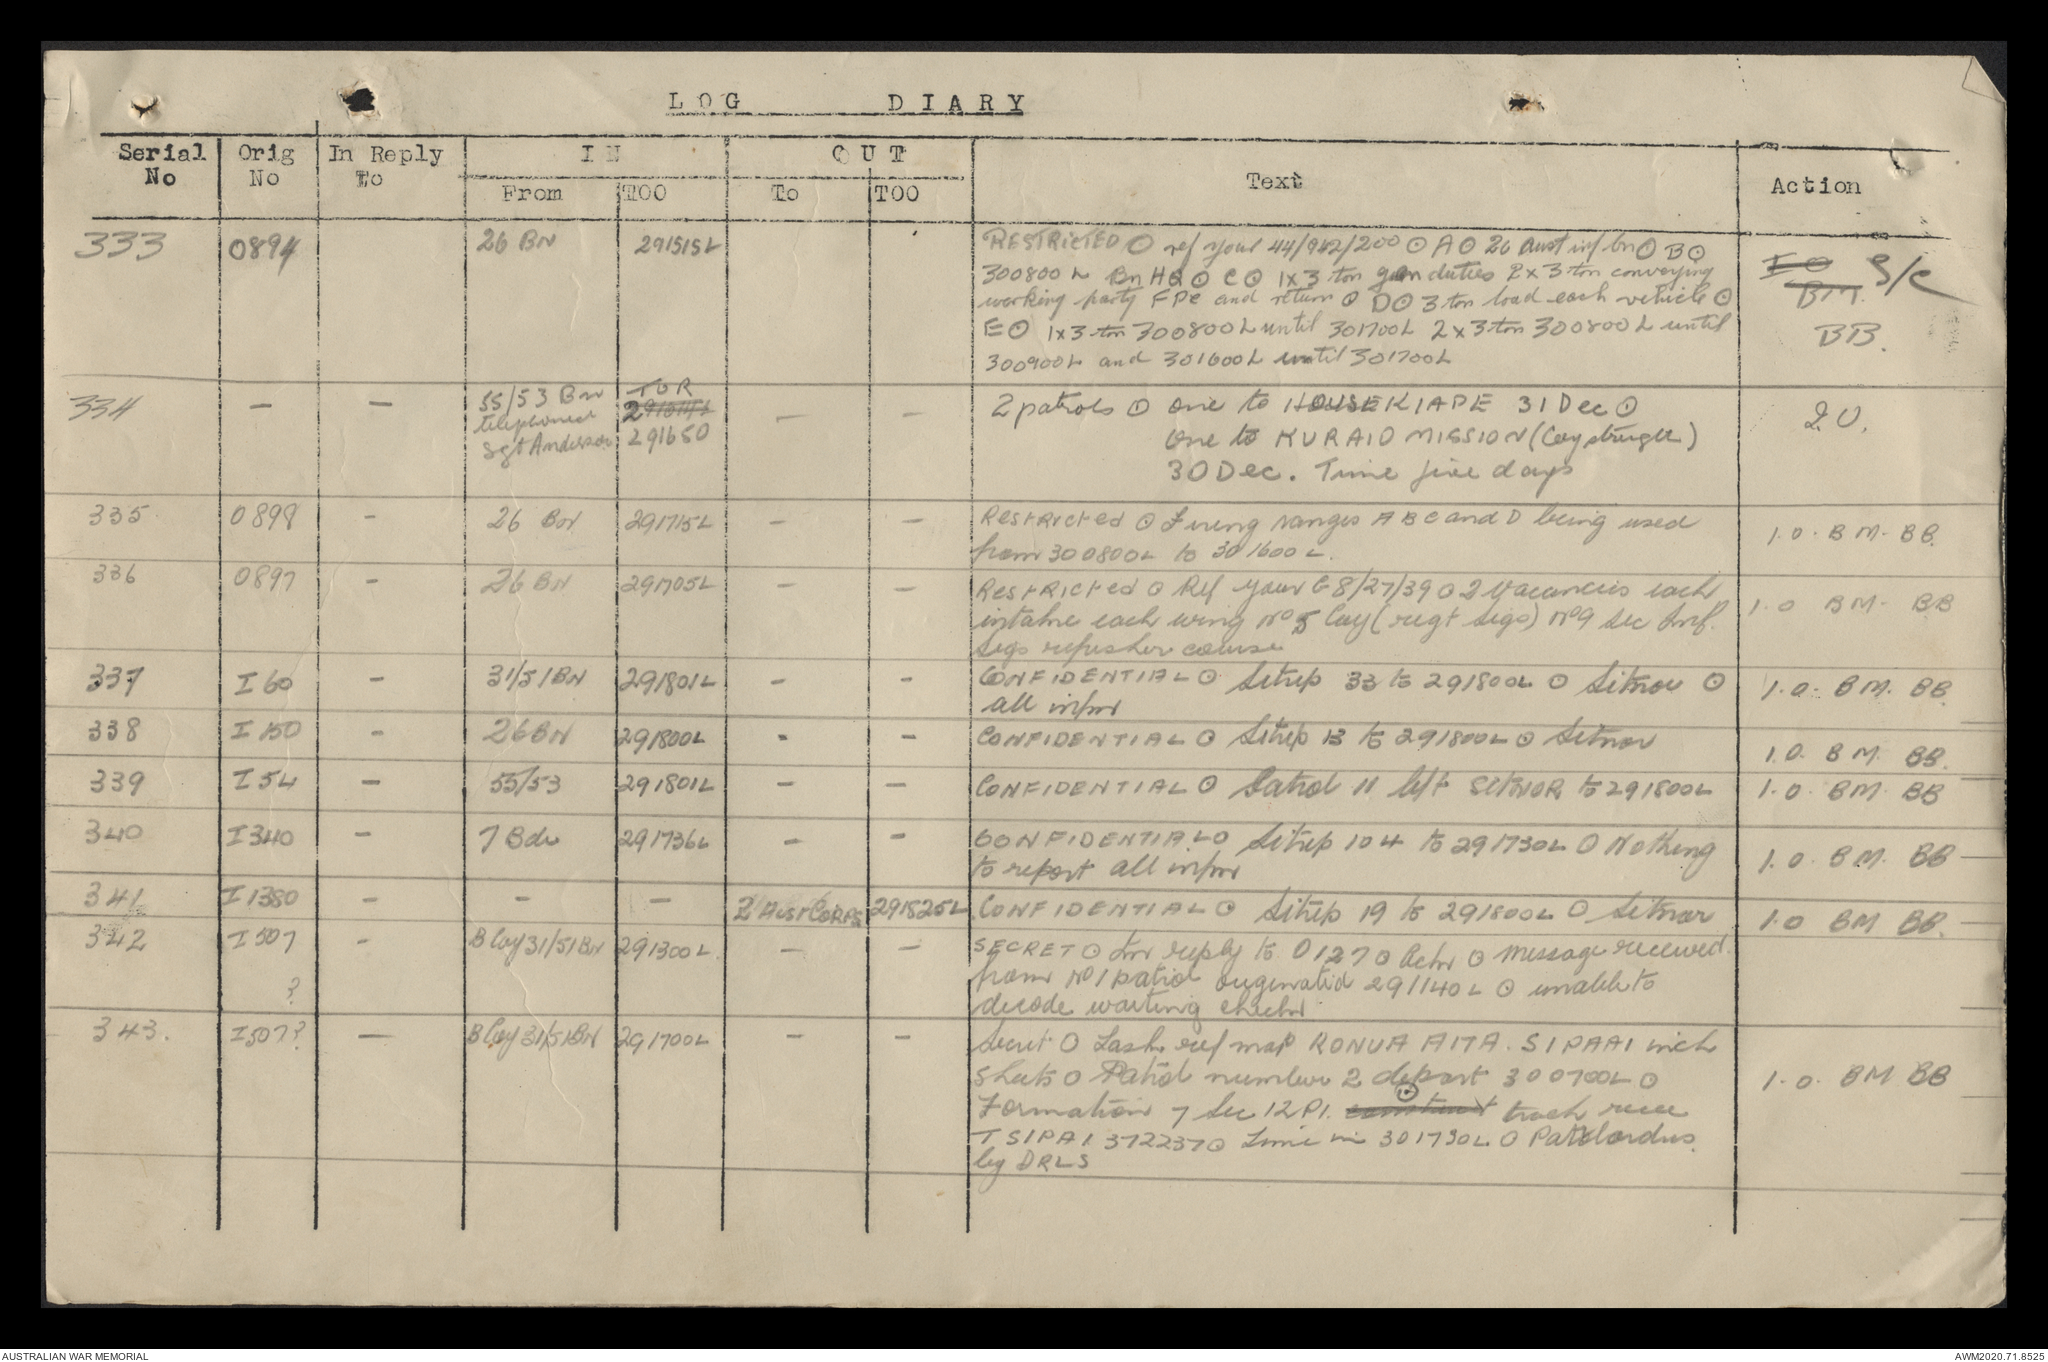 LOG DIARY
Serial No | Orig No | In Reply To | IN From | TOO | OUT To | TOO | Text | Action
333 | 0894 | | 26 BN | 291515L | | | RESTRICTED ⊙ ref your 44/942/200 ⊙ A ⊙ 26 Aust inf bn ⊙ B ⊙ | S/C
300800L Bn HQ ⊙ C ⊙ 1 x 3 ton gen duties 2 x 3 ton conveying | BM.
working party FDC and return ⊙ D ⊙ 3 ton load each vehicle ⊙
E ⊙ 1 x 3 ton 300800L until 301700L 2 x 3 ton 300800L until | BB.
300900L and 301600L until 301700L
334 | – | – | 55/53 Bn telephoned Sgt Anderson | TOR 291650 | – | – | 2 patrols ⊙ one to HOUSE KIAPE 31 Dec ⊙ | I.O.
One to KURAIO MISSION (Coy strength)
30 Dec. Time five days
335 | 0898 | – | 26 Bn | 291715L | – | – | Restricted ⊙ Firing ranges A B C and D being used | I.O. BM. BB.
from 300800L to 301600L.
336 | 0897 | – | 26 BN | 291705L | – | – | Restricted ⊙ Ref your G8/27/39 ⊙ 2 Vacancies each | I.O BM. BB
intake each wing No 5 Coy (regt Sigs) No 9 Sec Inf.
Sigs refresher course
337 | I 60 | – | 31/51 BN | 291801L | – | – | CONFIDENTIAL ⊙ Sitrep 33 to 291800L ⊙ Sitnor ⊙ | I.O. BM. BB.
all infm
338 | I 150 | – | 26 BN | 291800L | - | – | CONFIDENTIAL ⊙ Sitrep 13 to 291800L ⊙ Sitnor | I.O. BM. BB.
339 | I 54 | – | 55/53 | 291801L | – | – | CONFIDENTIAL ⊙ Patrol 11 left SITNOR to 291800L | I.O. BM. BB
340 | I 340 | – | 7 Bde | 291736L | – | – | CONFIDENTIAL ⊙ Sitrep 104 to 291730L ⊙ Nothing | I.O. BM. BB
to report all infm
341 | I 1380 | – | – | – | 2 Aust CORPS | 291825L | CONFIDENTIAL ⊙ Sitrep 19 to 291800L ⊙ Sitnor | I.O BM BB.
342 | I 507 ? | – | B Coy 31/51 BN | 291300L | – | – | SECRET ⊙ In reply to O127 ⊙ Actn ⊙ Message received
from No 1 patrol originated 291140L ⊙ unable to
decode waiting check
343. | I 507? | – | B Coy 31/51 BN | 291700L | – | – | Secret ⊙ Task ref map RONUA AITA. SIPAAI inch | I.O. BM BB
Sheets ⊙ Patrol number 2 depart 300700L ⊙
Formation 7 Sec 12 Pl. ⊙ track recce
T SIPAI 372237 ⊙ Time in 301730L ⊙ Patrol ordus.
by DRLS
AUSTRALIAN WAR MEMORIAL
AWM2020.71.8525